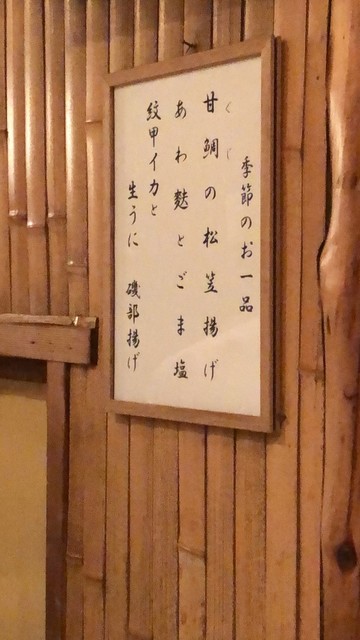 季節のお一品
くじ
甘鯛の松笠揚げ
あわ麩とごま塩
紋甲イカと
生うに 磯部揚げ